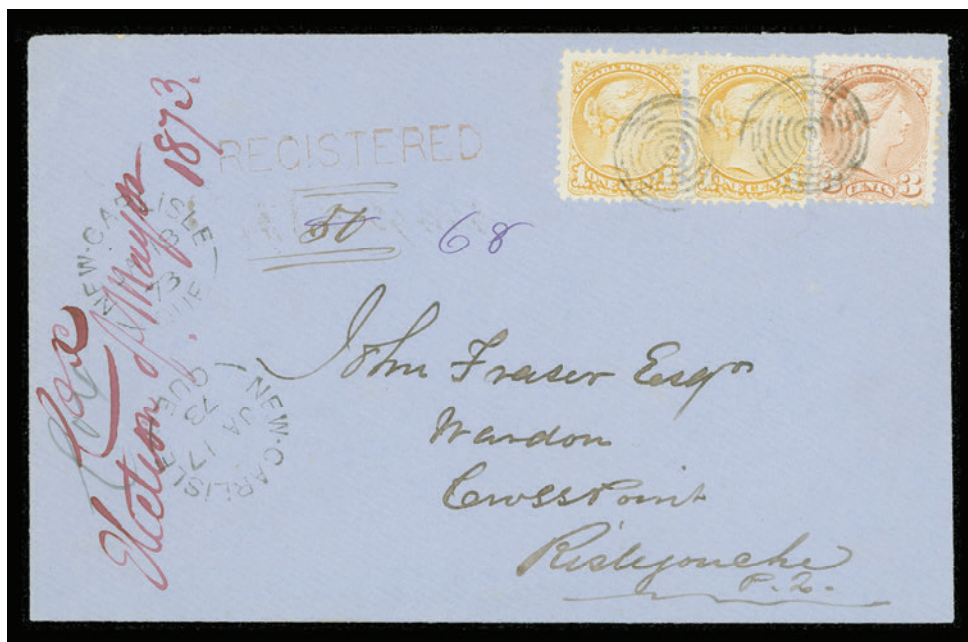 CANADA POSTAGE
1 ONE CENT 1
CANADA POSTAGE
1 ONE CENT
CENTS 3
REGISTERED
50
68
NEW-CARLISLE
73
QUE
NEW-CARLISLE
JA 17
73
QUE
Cox
Election of Mayor
1873.
John Fraser Esqr
Wardon
Cross Point
Ristigouche
P.Q.